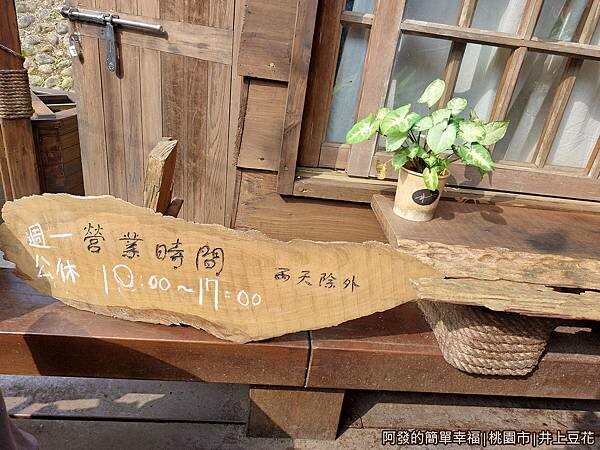 週一
公休
營業時間
10:00~17:00
雨天除外
阿發的簡單幸福|桃園市|井上豆花